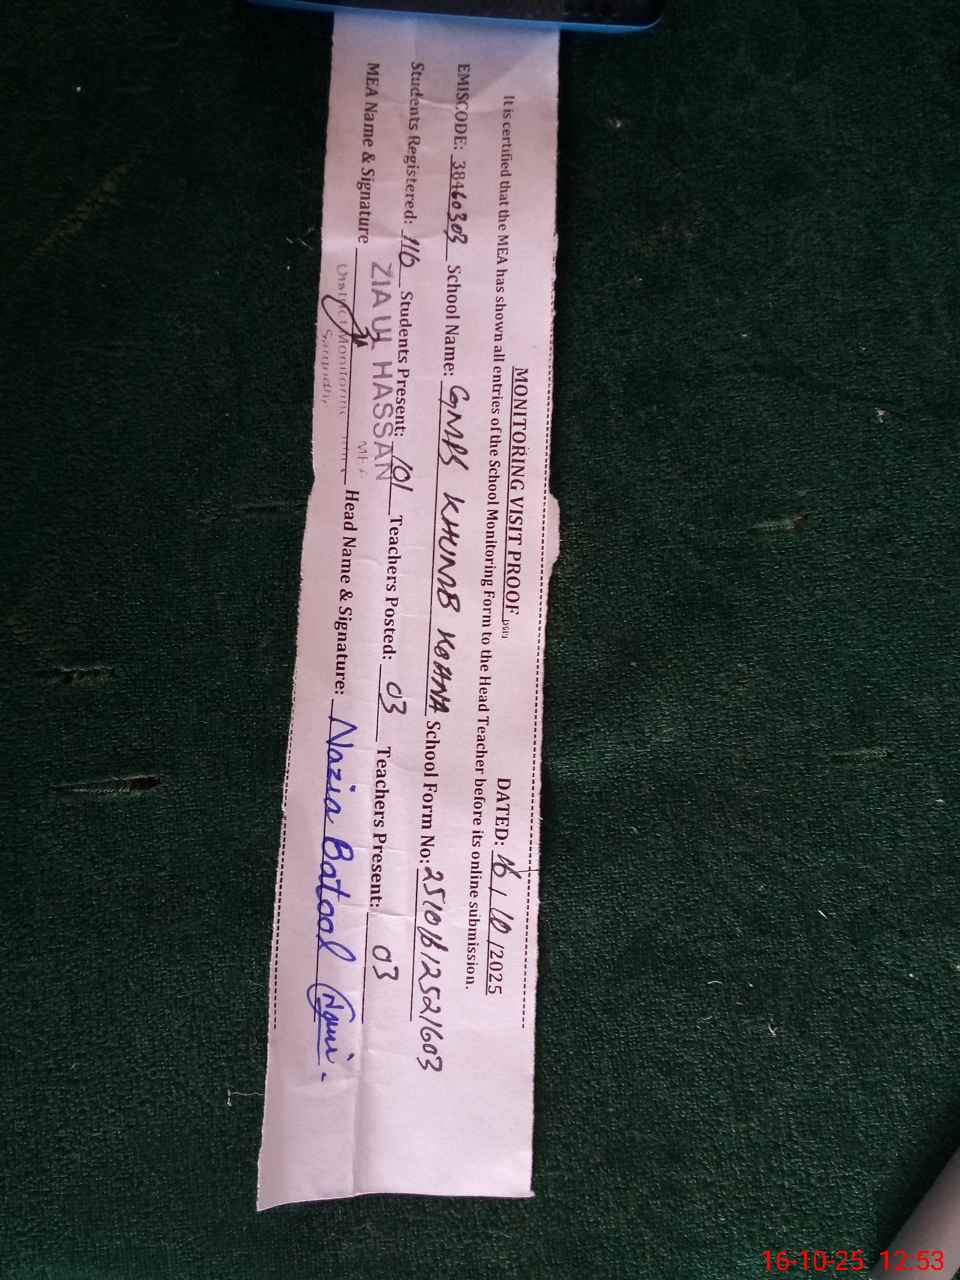 MONITORING VISIT PROOF
DATED: 16/10/2025
It is certified that the MEA has shown all entries of the School Monitoring Form to the Head Teacher before its online submission.
EMISCODE: 38460303 School Name: GMPS KHUMB KOHNA School Form No: 25101612521603
Students Registered: 116 Students Present: 101 Teachers Posted: 03 Teachers Present: 03
MEA Name & Signature ZIA UL HASSAN Head Name & Signature: Nazia Batool
MEA
District Monitoring
16-10-25 12:53